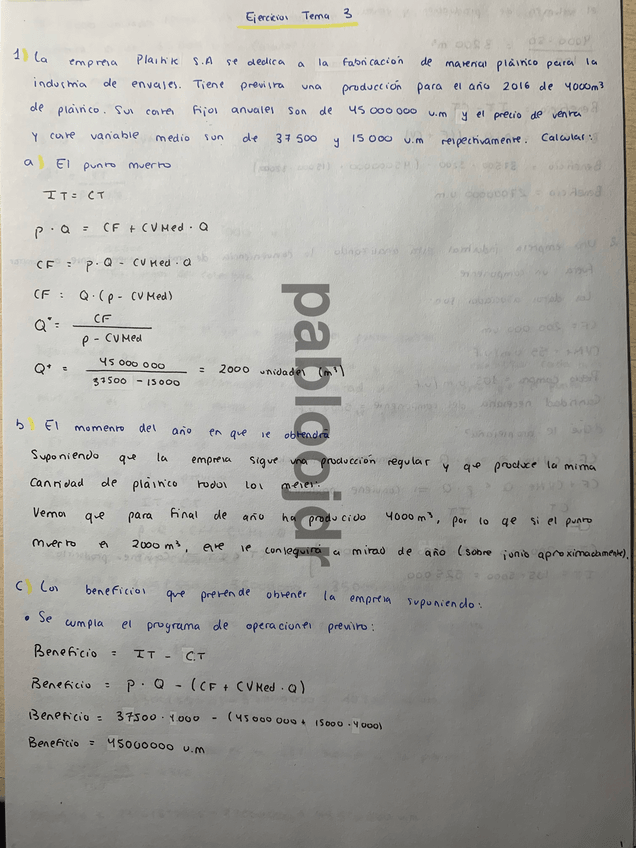 Ejercicios Tema 3
1) La empresa Plastik S.A se dedica a la fabricación de material plástico para la
industria de envases. Tiene prevista una producción para el año 2016 de 4000m³
de plástico. Sus costes fijos anuales son de 45 000 000 u.m y el precio de venta
y coste variable medio son de 37 500 y 15 000 u.m respectivamente. Calcular:
a) El punto muerto
IT = CT
P · Q = CF + CVMed · Q
CF = P·Q - CVMed · Q
CF = Q·(P - CVMed)
Q* = CF / P - CVMed
Q* = 45 000 000 / 37500 - 15000 = 2000 unidades (m³)
b) El momento del año en que se obtendrá
Suponiendo que la empresa sigue una producción regular y que produce la misma
cantidad de plástico todos los meses.
Vemos que para final de año ha producido 4000m³, por lo qe si el punto
muerto es 2000m³, este se conseguirá a mitad de año (sobre junio aproximadamente).
c) Los beneficios que pretende obtener la empresa suponiendo:
• Se cumpla el programa de operaciones previsto:
Beneficio = IT - CT
Beneficio = P · Q - (CF + CVMed · Q)
Beneficio = 37500 · 4000 - (45 000 000 + 15000 · 4000)
Beneficio = 45000000 u.m
pabloojdr
1